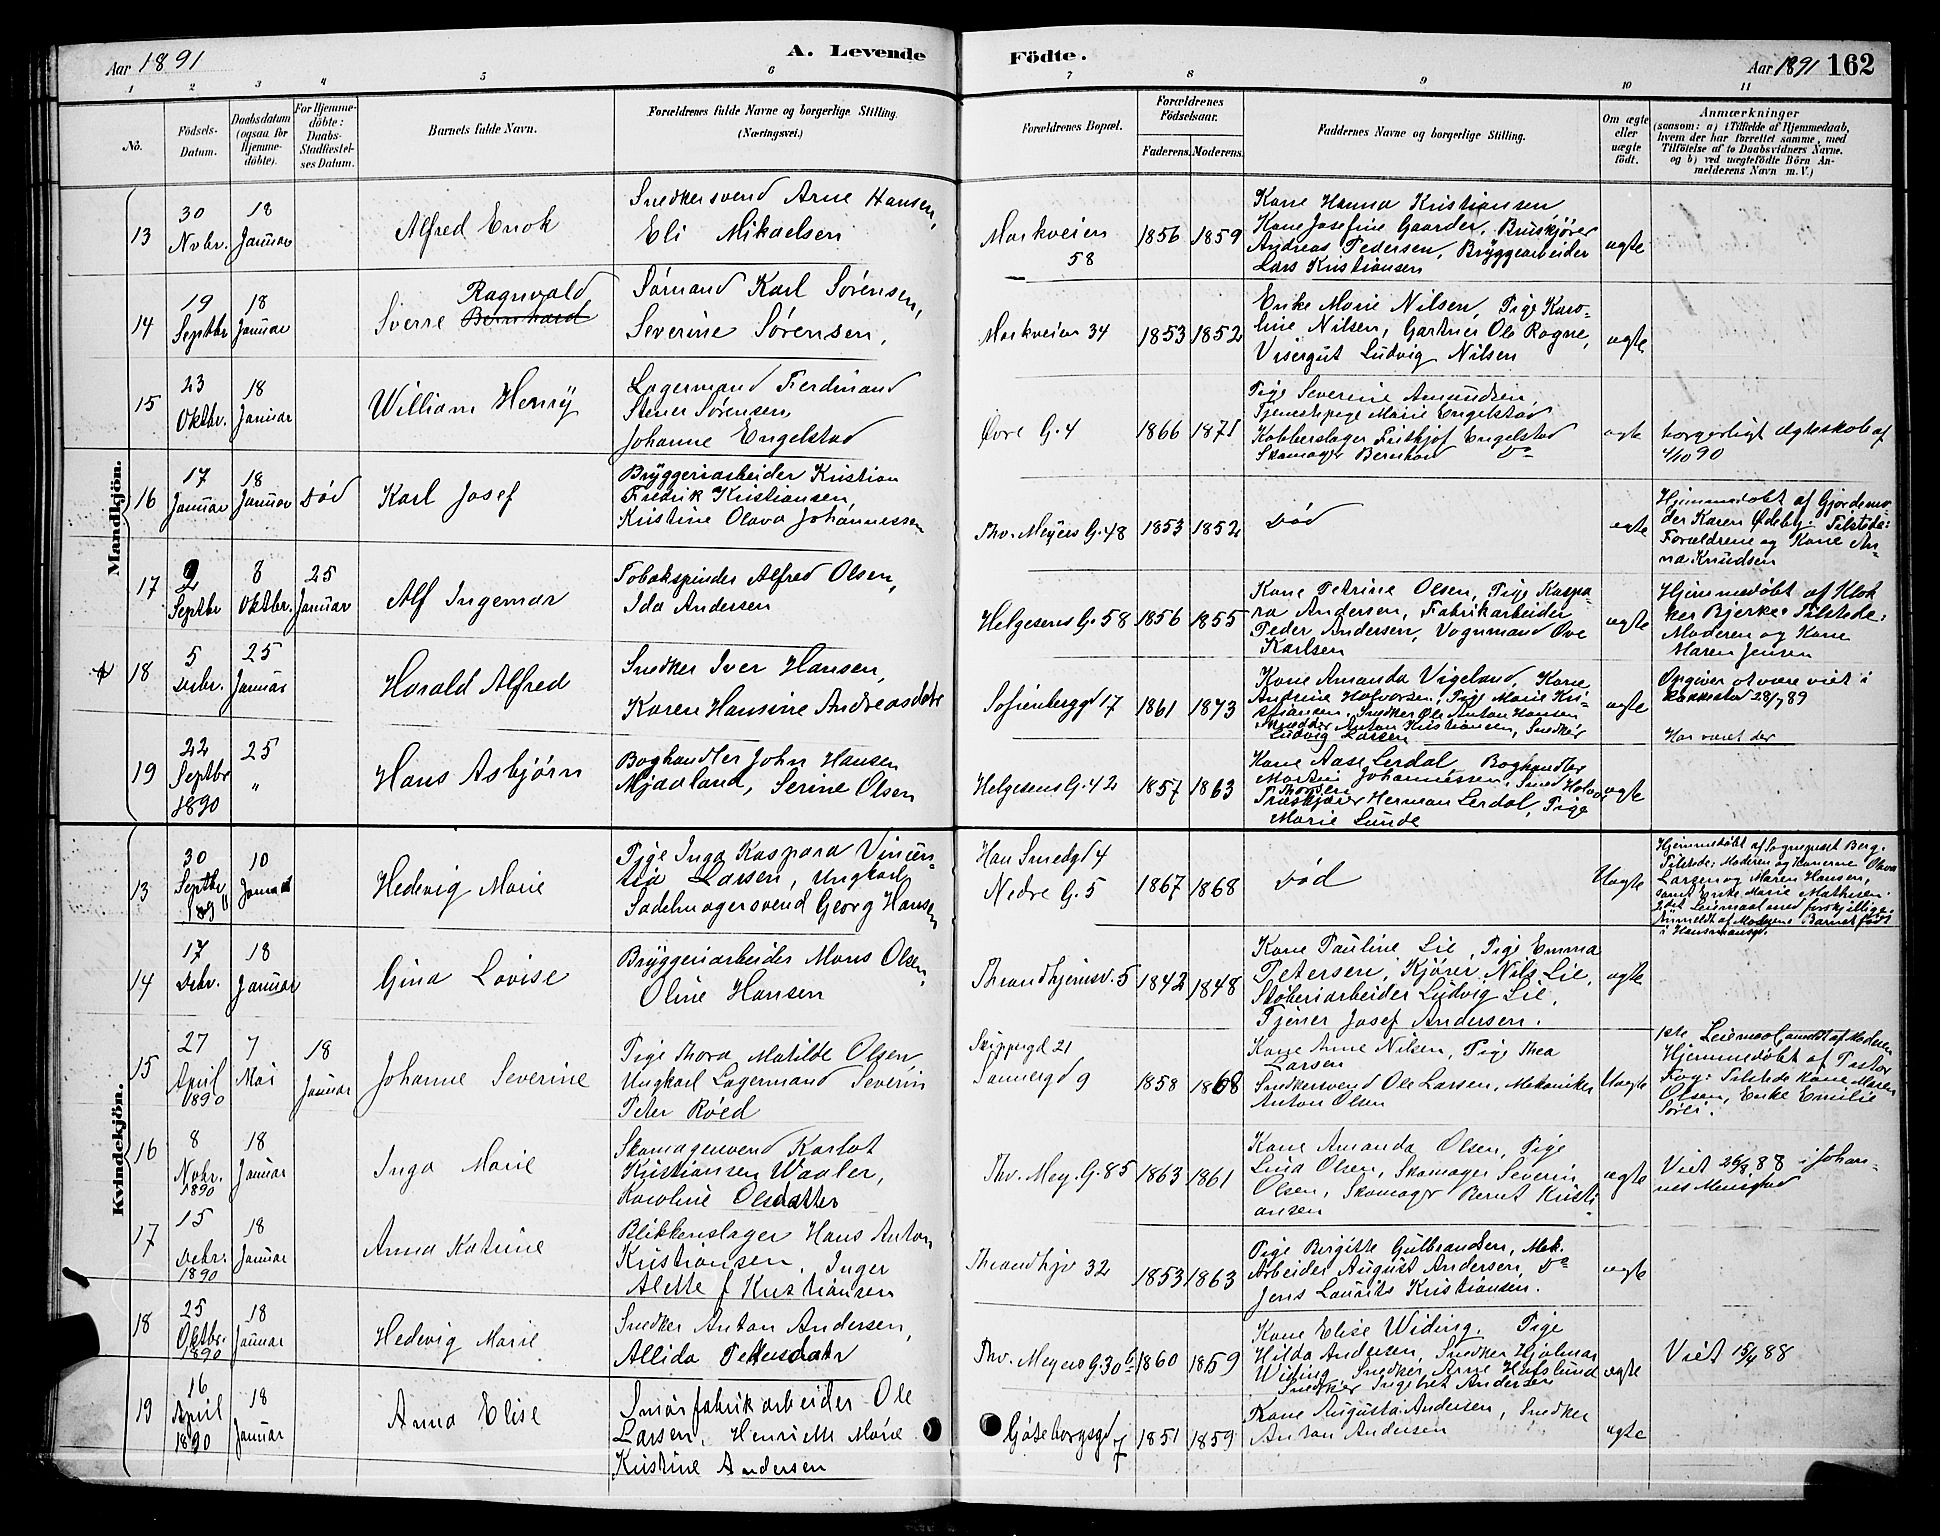 Aar 1891
A. Levende
Födte.
Aar 1891 162
1 2 3 4 5 6 7 8 9 10 11
No.
Födsels-
Datum.
Daabsdatum
(ogsaa for
Hjemme-
döbte).
For Hjemme-
döbte:
Daabs-
Stadfæstel-
ses Datum.
Barnets fulde Navn.
Forældrenes fulde Navne og borgerlige Stilling.
(Næringsvei.)
Forældrenes Bopæl.
Forældrenes
Födselsaar.
Faderens. Moderens.
Faddernes Navne og borgerlige Stilling.
Om ægte
eller
uægte
födt.
Anmærkninger
(saasom: a) i Tilfælde af Hjemmedaab,
hvem der har forrettet samme, med
Tilföielse af to Daabsvidners Navne.
og b) ved uægtefödte Börn An-
melderens Navn m. V.)
Mandkjön.
13
30
Novbr.
18
Januar
Alfred Enok
Snedkersvend Arne Hansen,
Eli Mikaelsen
Markveien
58
1856 1859
Kone Hanna Kristiansen
Kone Josefine Gaarder, Bruskjører
Andreas Pedersen, Bryggearbeider
Lars Kristiansen
ægte
14
19
Septbr
18
Januar
Ragnvald
Sverre Bernhard
Sømand Karl Sørensen,
Severine Sørensen,
Markveien 34
1853 1852
Enke Marie Nilsen, Pige Karo-
line Nilsen, Gartner Ole Rogne,
Visergut Ludvig Nilsen
ægte
15
23
Oktbr.
18
Januar
William Henry
Lagermand Ferdinand
Stener Sørensen,
Johanne Engelstad
Øvre G. 4
1866 1871
Pige Severine Amundsen,
Tjenestepige Marie Engelstad
Kobberslager Fritkjof Engelstad
Skomager Bernhard Do
ægte
borgerligt Ægteskab af
4/10 90
16
17
Januar
18
Januar
Død
Karl Josef
Bryggeriarbeider Kristian
Fredrik Kristiansen,
Kristine Olava Johannessen
Thv. Meyers G. 48
1853 1852
Død
ægte
Hjemmedøbt af Gjordemo-
der Karen Ødeby. Tilstede:
Forældrene og Kone An-
na Knudsen
17
2
Septbr
8
Oktbr.
25
Januar
Alf Ingemar
Tobakspinder Alfred Olsen,
Ida Andersen
Helgesens G. 58
1856 1855
Kone Petrine Olsen, Pige Kaspa-
ra Andersen, Fabrikarbeider
Peder Andersen, Vognmand Ove
Karlsen
ægte
Hjemmedøbt af Klok
ker Bjerke. Tilstede:
Moderen og Kone
Maren Jensen
18
5
Debr.
25
Januar
Harald Alfred
Snedker Iver Hansen,
Karen Hansine Andreasdatr
Sofienberggd 17
1861 1873
Kone Amanda Vigeland, Kone
Andrine Halvorsen, Pige Marie Kri-
stiansen, Snedker Ole Anton Hansen
Skrædder Anton Kristiansen, Snedker
Ludvig Larsen
ægte
Opgiver at være viet i
Rakkestad 28/7 89
Har været der
19
22
Septbr
1890
25
"
Hans Asbjørn
Boghandler John Hansen
Mjaaland, Serine Olsen
Helgesens G. 42
1857 1863
Kone Aase Lerdal, Boghandler
Martin Johannessen, Smed Halvor
Thorsen
Træskjærer Herman Lerdal, Pige
Marie Lunde
ægte
Kvindekjön.
13
30
Septbr
10
Januar
Hedevig Marie
Pige Inga Kaspara Vincen-
tia Larsen, Ungkarl
Sadelmagersvend Georg Hansen
Han Smedgd 4
Nedre G. 5
1867 1868
Død
Uægte
Hjemmedøbt af Sognepræst Berg.
Tilstede: Moderen og Konerne Olava
Larsen og Maren Hansen,
samt Enke Marie Mathisen.
2det Leiermaal med forskjellige.
Anmeldt af Moderen. Barnet født
i Hausmansgd.
14
17
Debr.
18
Januar
Gina Lovise
Bryggeriarbeider Mons Olsen,
Oline Hansen
Throndhjemsv. 5
1842 1848
Kone Pauline Lie, Pige Emma
Petersen, Kjører Nils Lie,
Støberiarbeider Ludvig Lie,
Tjener Josef Andersen.
ægte
15
27
April
1890
7
Mai
18
Januar
Johanne Severine
Pige Thora Matilde Olsen,
Ungkarl Lagermand Severin
Peter Røed
Skippergd 21
Sannergd 9
1858 1868
Kone Anne Nilsen, Pige Thea
Larsen
Snedkersvend Ole Larsen, Mekaniker
Anton Olsen
Uægte
1ste Leiermaal, anmeldt af Moderen
Hjemmedøbt af Pastor
Fog. Tilstede Kone Maren
Olsen, Enke Emilie
16
8
Novbr.
1890
18
Januar
Inga Marie
Skomagersvend Karlot
Kristiansen Waaler,
Karoline Olsdatter
Thv. Mey. G. 85
1863 1861
Kone Amanda Olsen, Pige
Lina Olsen, Skomager Severin
Olsen, Skomager Bernt Kristi-
ansen
ægte
Viet 26/8 88 i Johan-
nes Menighed
17
15
Debr.
1890
18
Januar
Anna Katrine
Blikkenslager Hans Anton
Kristiansen, Inger
Alette f Kristiansen
Throndhjv 32
1853 1863
Pige Birgitte Gulbrandsen, Mek.
Arbeider August Andersen, Do
Jens Lauritz Kristiansen.
ægte
18
25
Oktbr.
1890
18
Januar
Hedevig Marie
Snedker Anton Andersen,
Allida Pettersdatr
Thv. Meyers G. 30 b
1860 1859
Kone Elise Widing, Pige
Hilda Andersen, Snedker Hjalmar
Widing, Snedker Arne Hafslund
Snedker Ingebret Andersen
ægte
Viet 15/4 88
19
16
April
1890
18
Januar
Anna Elise
Smørfabrikarbeider Ole
Larsen, Henriette Marie
Kristine Andersen
Gøteborgsgd 7
1851 1859
Kone Augusta Andersen, Snedker
Anton Andersen
ægte